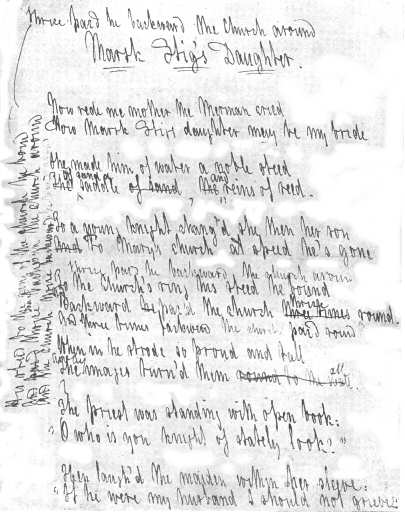 thrice pac'd he backward the church around
Marsk Stig's Daughter.
Now rede me mother the Merman cried
How Marsk Stig's daughter may be my bride
She made him of water a noble steed
Of sand a saddle of sand, and reins of reed.
To a young knight chang'd she then her son
And To Mary's church at speed he's gone
thrice pac'd he backward the church around
To the Church's ring his steed he bound
Backward he pac'd the church thrice three times round.
And three times backward the church pac'd round
When in he strode so proud and tall
The images turn'd them round to the wall.
The priest was standing with open book:
"O who is yon knight of stately look?"
Then laugh'd the maiden within her sleeve:
"If he were my husband I should not grieve."